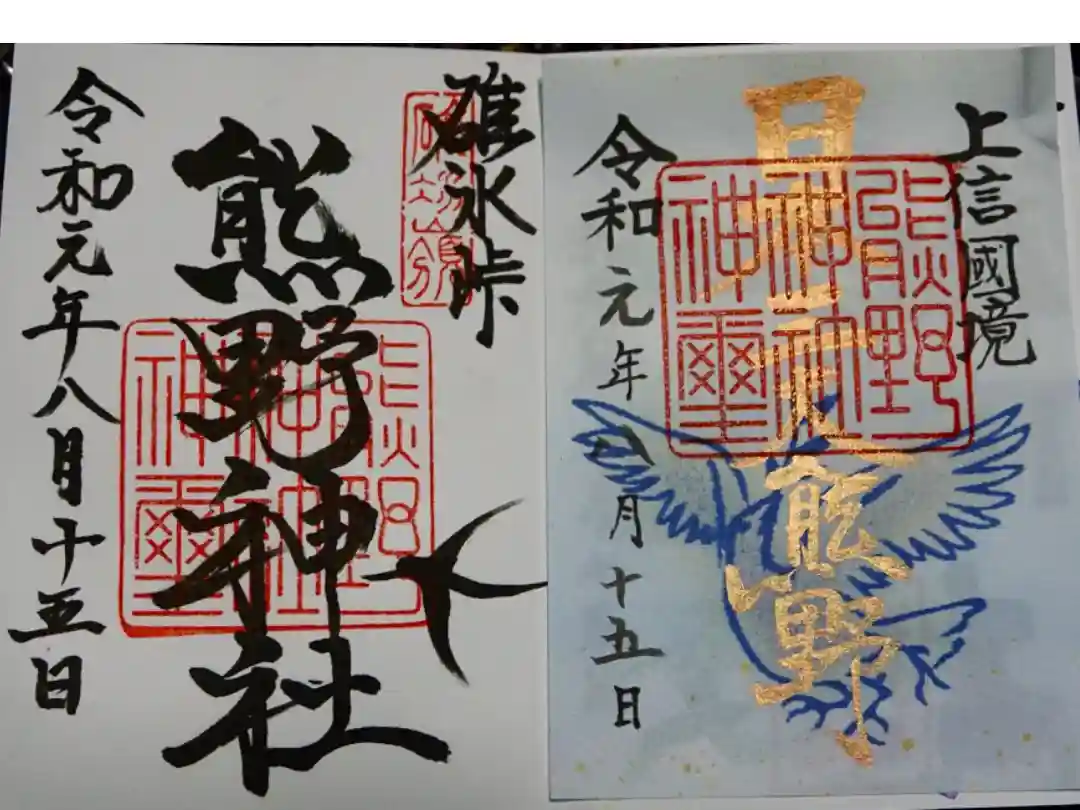 上信國境
日本三大熊野
熊野
神社
神璽
令和元年八月十五日
碓氷峠
熊野神社
熊野
神社
神璽
令和元年八月十五日